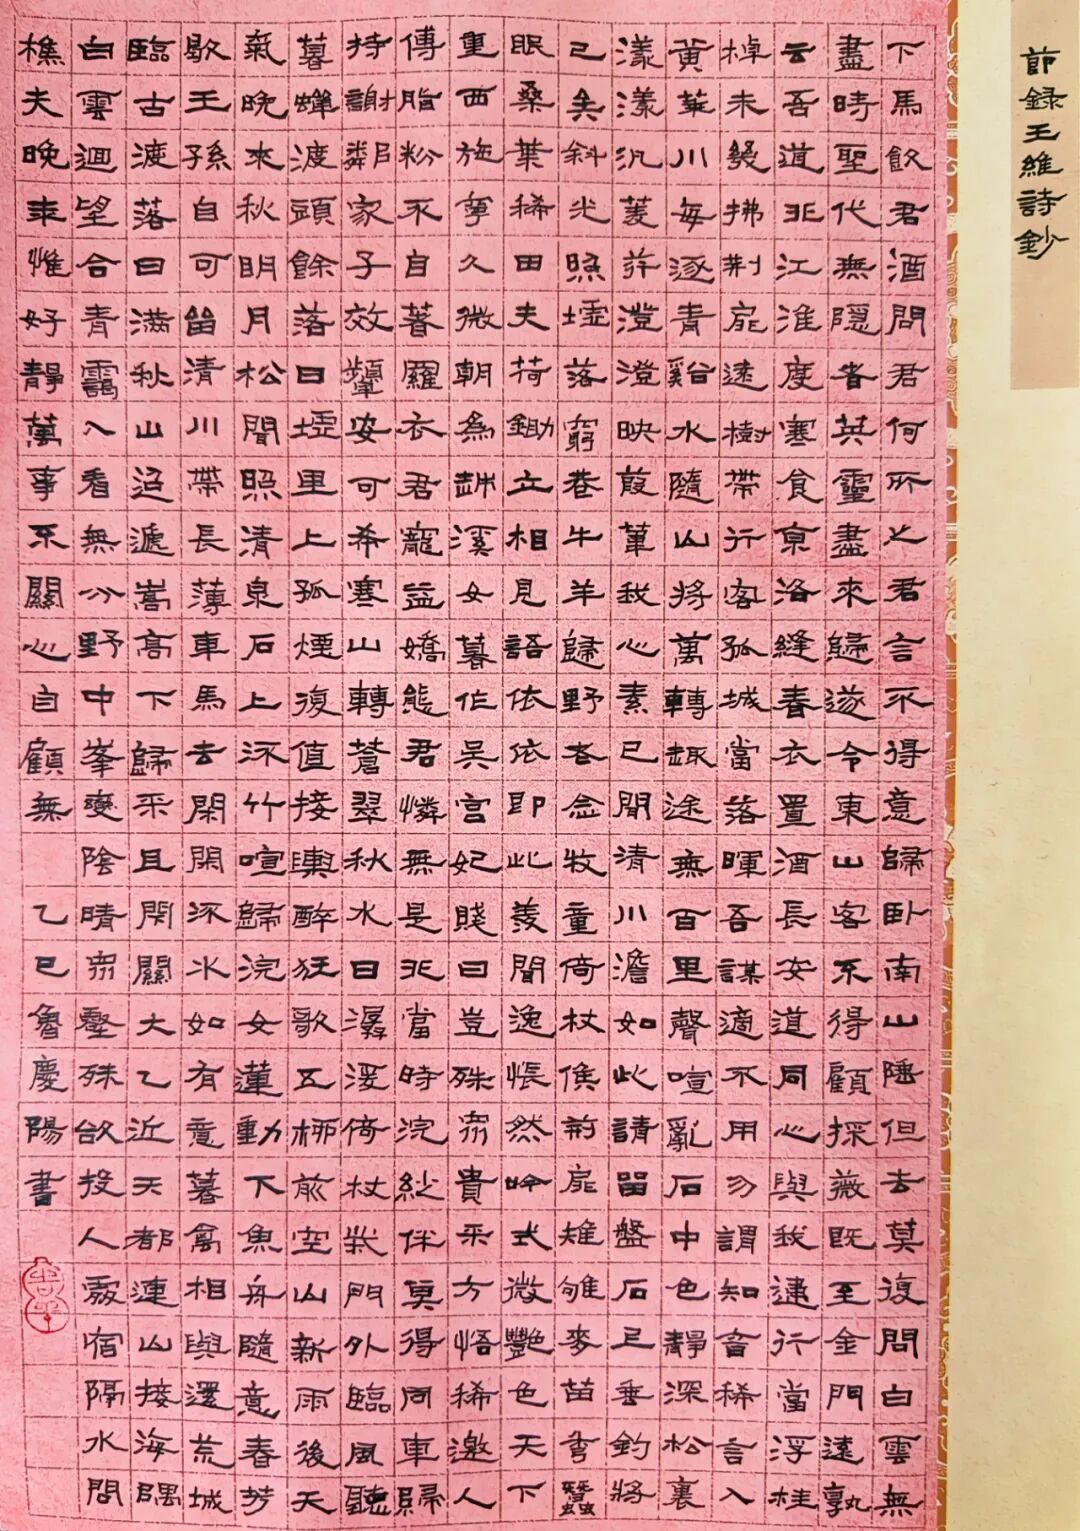 節録王維詩鈔
下馬飲君酒問君何所之君言不得意歸臥南山陲但去莫復問白雲無
盡時聖代無隱者英靈盡來歸遂令東山客不得顧採薇既至金門遠孰
云吾道非江淮度寒食京洛縫春衣置酒長安道同心與我違行當浮桂
棹未幾拂荊扉遠樹帶行客孤城當落暉吾謀適不用勿謂知音稀言入
黃華川每逐青谿水隨山將萬轉趣途無百里聲喧亂石中色靜深松裏
漾漾汎菱荇澄澄映葭葦我心素已閒清川澹如此請留盤石上垂釣將
已矣斜光照墟落窮巷牛羊歸野老念牧童倚杖候荊扉雉雊麥苗秀蠶
眠桑葉稀田夫荷鋤立相見語依依即此羨閒逸悵然吟式微艷色天下
重西施寧久微朝為越溪女暮作吳宮妃賤日豈殊眾貴來方悟稀邀人
傅脂粉不自著羅衣君寵益嬌態君憐無是非當時浣紗伴莫得同車歸
持謝鄰家子效顰安可希寒山轉蒼翠秋水日潺湲倚杖柴門外臨風聽
暮蟬渡頭餘落日墟里上孤煙復值接輿醉狂歌五柳前空山新雨後天
氣晚來秋明月松間照清泉石上流竹喧歸浣女蓮動下魚舟隨意春芳
歇王孫自可留清川帶長薄車馬去閑閑流水如有意暮禽相與還荒城
臨古渡落日滿秋山迢遞嵩高下歸來且閉關大乙近天都連山接海隅
白雲迴望合青靄入看無分野中峯變陰晴眾壑殊欲投人處宿隔水問
樵夫晚年惟好靜萬事不關心自顧無 乙巳魯慶陽書